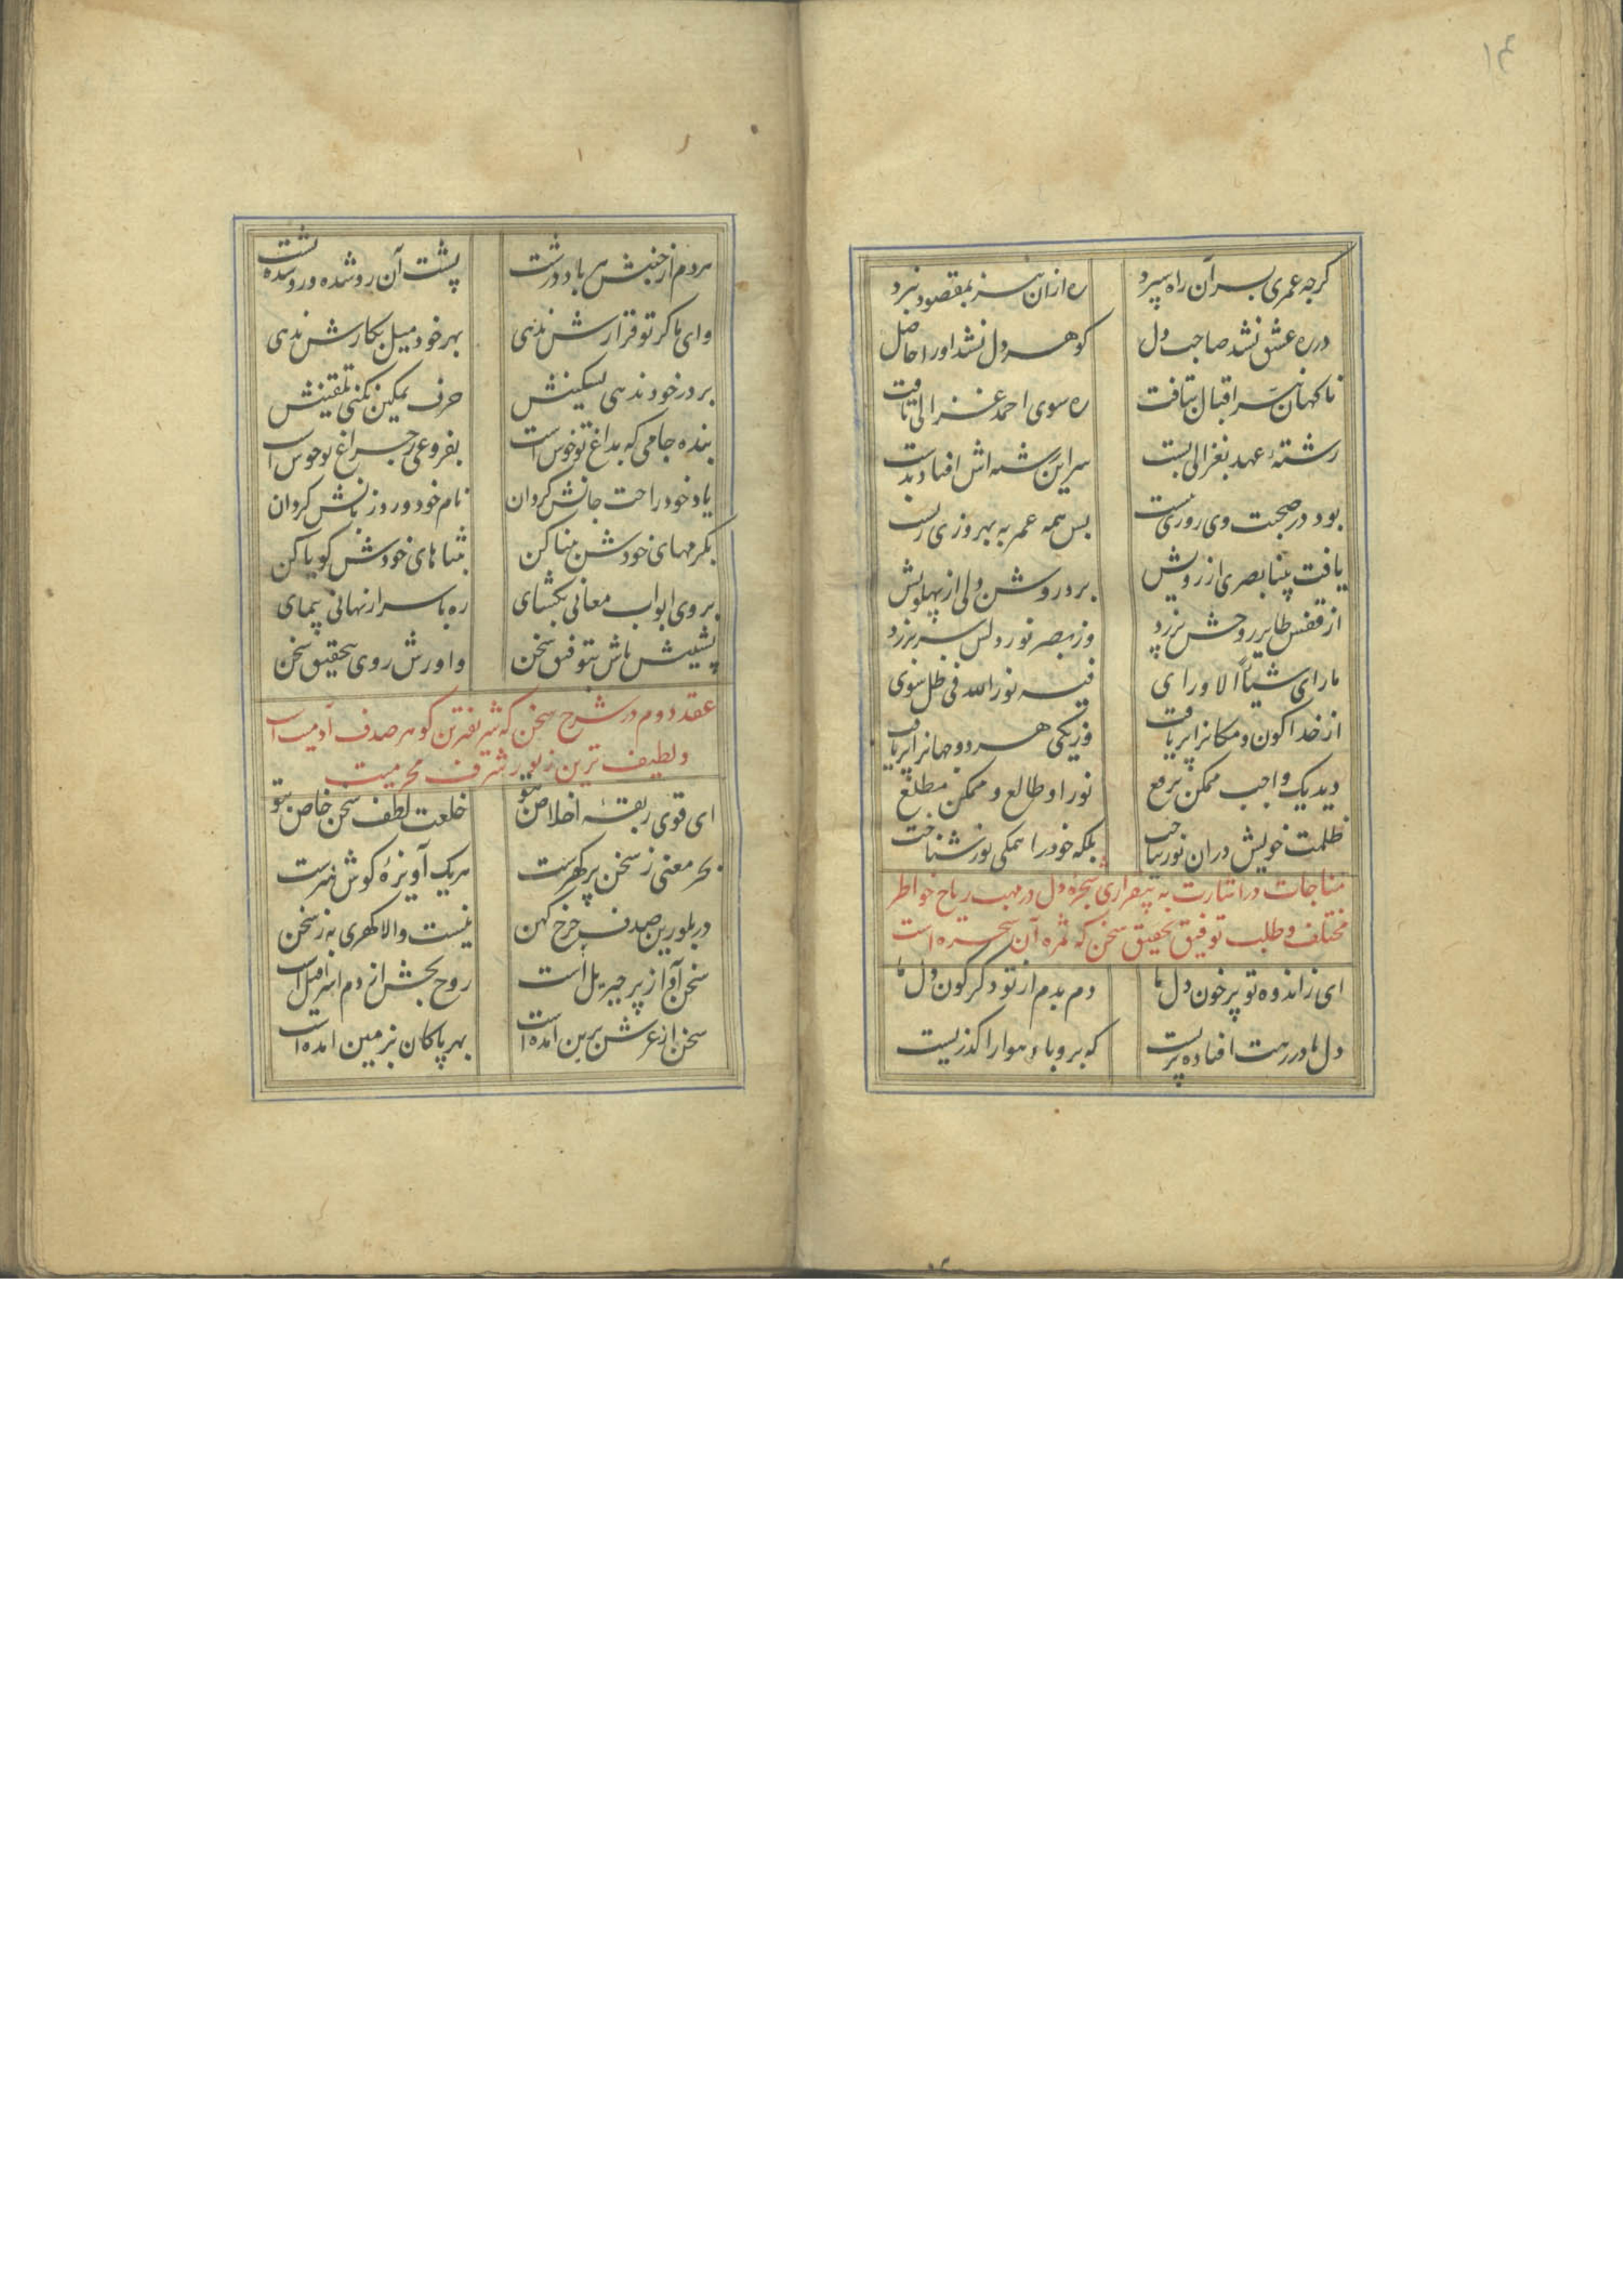 ۱۴
گرچه عمری بسر آن راه سپرد ره ازان هم سر بمقصود نبرد
در ره عشق نشد صاحب دل گوهر دل نشد او را حاصل
ناگهان سر اقبال بتافت ره سوی احمد غزالی یافت
رشتهٔ عهد بغزالی بست سر این رشته اش افتاد بدست
بود در صحبت وی روزی بیست بس همه عمر به بهروزی زیست
یافت بینا بصری از رویش پرورش ولی از پهلویش
از قفس طایر روحش پرزد وز بصر نور دلش سر برزد
ما رای شیئا الا ورای فیه نور الله فی ظل سوی
از خدا کون و مکانرا پر یافت وز یکی هر دو جهانرا پر یافت
دید یک واجب ممکن برقع نور او طالع و ممکن مطلع
ظلمت خویش دران نور بباخت بلکه خود را همگی نور شناخت
مناجات در اشارت به بیقراری شجره دل در مهب ریاح خواطر
مختلف و طلب توفیق تحقیق سخن که ثمره آن شجره است
ای ز اندوه تو پر خون دل ما دم بدم از تو دگرگون دل ما
دل ما در رهت افتاده پریست که برو باد هوا را گذریست
هر دم از جنبش هر باد درشت پشت آن رو شده و رو شده پشت
وای ما گر تو قرارش ندهی بهر خود میل بکارش ندهی
بر در خود ندهی تسکینش حرف تمکین نکنی تلقینش
بنده جامی که بداغ تو خوش است بفروغی ز چراغ تو خوش است
یاد خود راحت جانش گردان نام خود ورد زبانش گردان
بکرمهای خودش بینا کن بثناهای خودش گویا کن
بروی ابواب معانی بگشای ره باسرار نهانی بپیمای
پشتیش باش بتوفیق سخن واورش روی بتحقیق سخن
عقد دوم در شرح سخن که شریفترین گوهر صدف آدمیت است
و لطیف ترین زیور شرف محرمیت
ای قوی ربقهٔ اخلاص بتو خلعت لطف سخن خاص بتو
بحر معنی ز سخن پر گهرست هر یک آویزهٔ گوش هنرست
در بلورین صدف چرخ کهن نیست والا گهری به ز سخن
سخن آواز پر جبریل است روح بخش از دم اسرافیل است
سخن از عرش برین آمده است بهر پاکان بزمین آمده است